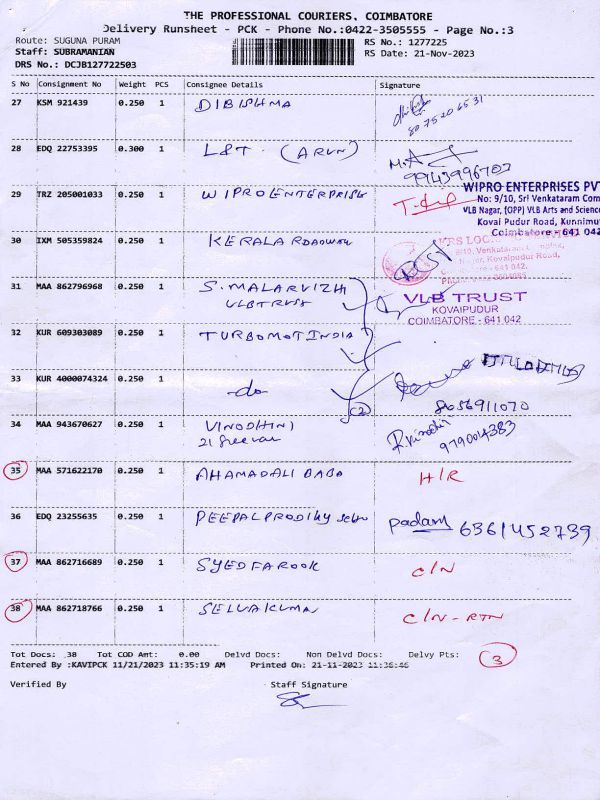 THE PROFESSIONAL COURIERS, COIMBATORE
Delivery Runsheet - PCK - Phone No.:0422-3505555 - Page No.:3
Route: SUGUNA PURAM
RS No.: 1277225
Staff: SUBRAMANIAN
RS Date: 21-Nov-2023
DRS No.: DCJB127722503
S No Consignment No Weight PCS Consignee Details Signature
27 KSM 921439 0.250 1 DIBISHMA
8075206531
28 EDQ 22753395 0.300 1 L&T. (ARUN)
9943996702
29 TRZ 205001033 0.250 1 WIPRO ENTERPRISE
WIPRO ENTERPRISES PVT
No: 9/10, Sri Venkataram Com
VLB Nagar, (OPP) VLB Arts and Science
Kovai Pudur Road, Kunnimut
Coimbatore - 641 042
30 IXM 505359824 0.250 1 KERALA ROADWAY
Kovaipudur Road,
641 042.
31 MAA 862796968 0.250 1 S. MALARVIZHI
VLB TRUST
VLB TRUST
KOVAIPUDUR
COIMBATORE - 641 042
32 KUR 609303089 0.250 1 TURBOMOT INDIA
33 KUR 4000074324 0.250 1 -do-
(2)
8656911070
34 MAA 943670627 0.250 1 VINODHINI
9790014383
35 MAA 571622170 0.250 1 AHAMADALI BABA H/R
36 EDQ 23255635 0.250 1 PEEPAL PRODIGY
padam 6361452739
37 MAA 862716689 0.250 1 SYED FAROOK C/N
38 MAA 862718766 0.250 1 SELVAKUMAR C/N-RTN
Tot Docs: 38 Tot COD Amt: 0.00 Delvd Docs: Non Delvd Docs: Delvy Pts: 3
Entered By :KAVIPCK 11/21/2023 11:35:19 AM Printed On: 21-11-2023 11:36:46
Verified By Staff Signature